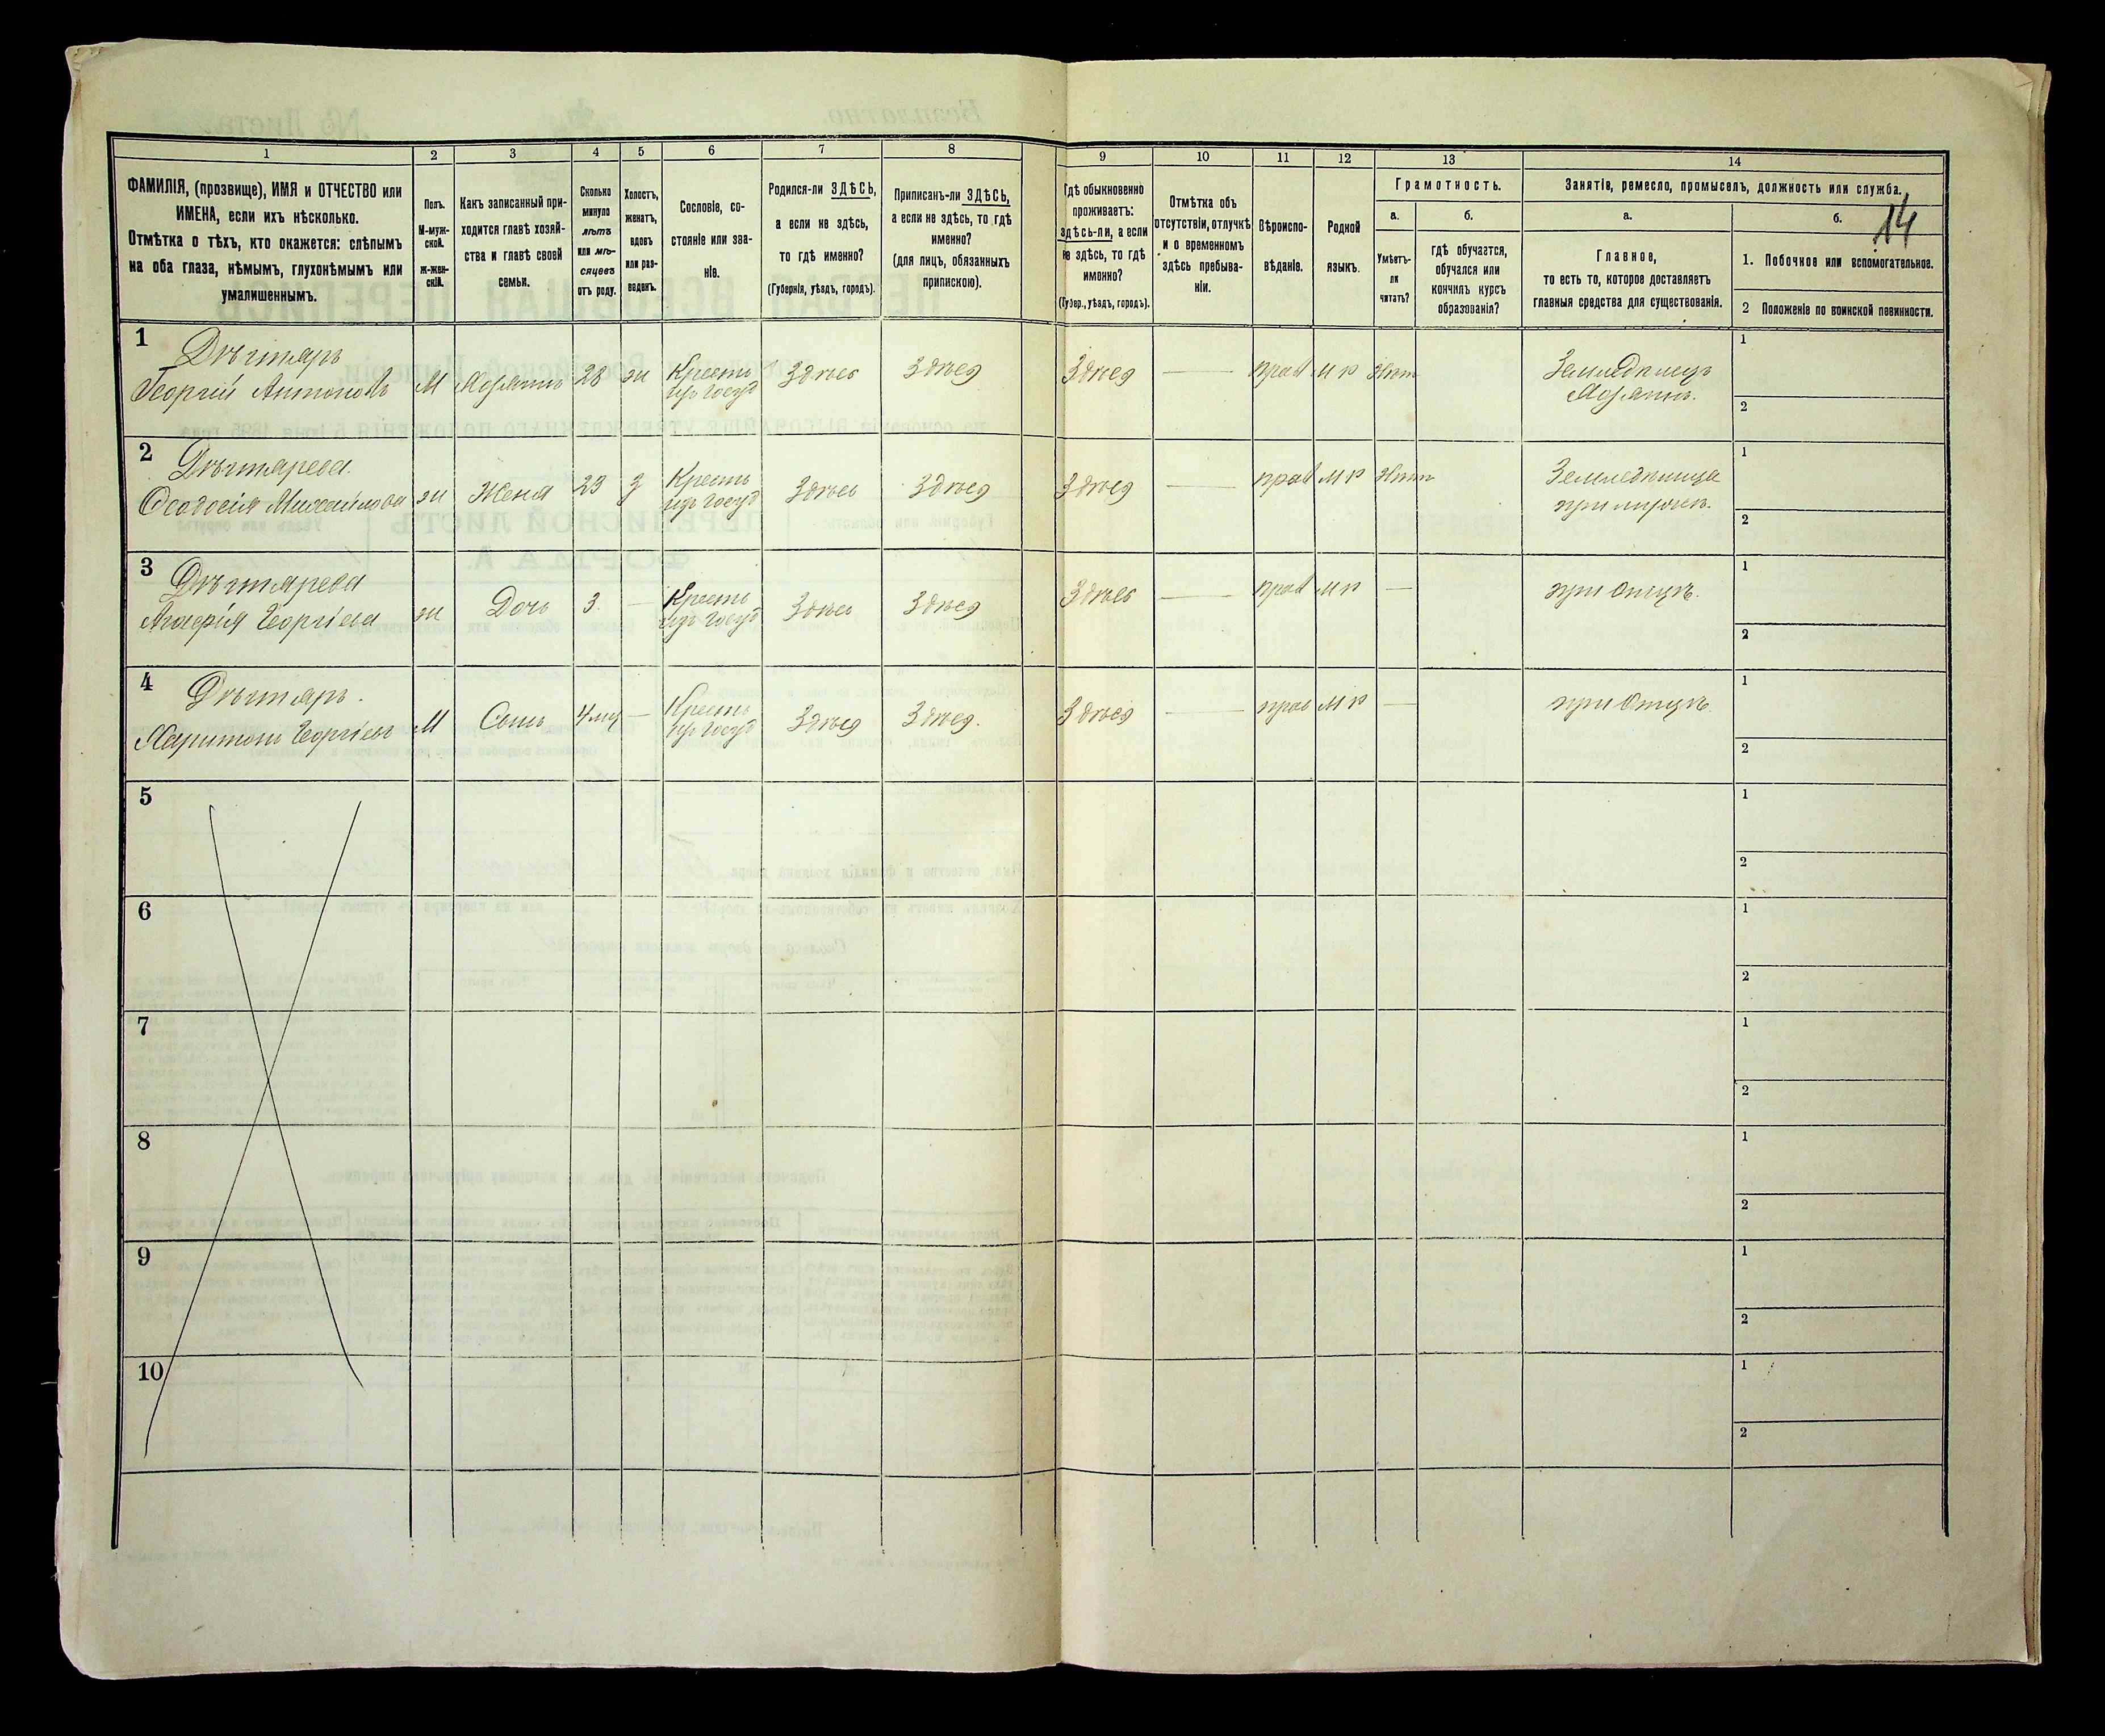 1 2 3 4 5 6 7 8 9 10 11 12 13 14
ФАМИЛІЯ, (прозвище), ИМЯ и ОТЧЕСТВО или
ИМЕНА, если ихъ нѣсколько.
Отмѣтка о тѣхъ, кто окажется: слѣпымъ
на оба глаза, нѣмымъ, глухонѣмымъ или
умалишеннымъ.
Полъ.
М-муж-
ской.
ж-жен-
скій.
Какъ записанный при-
ходится главѣ хозяй-
ства и главѣ своей
семьи.
Сколько
минуло
лѣтъ
или мѣ-
сяцевъ
отъ роду.
Холостъ,
женатъ,
вдовъ
или раз-
веденъ.
Сословіе, со-
стояніе или зва-
ніе.
Родился-ли ЗДѢСЬ,
а если не здѣсь,
то гдѣ именно?
(Губернія, уѣздъ, городъ).
Приписанъ-ли ЗДѢСЬ,
а если не здѣсь, то гдѣ
именно?
(для лицъ, обязанныхъ
припискою).
Гдѣ обыкновенно
проживаетъ:
здѣсь-ли, а если
не здѣсь, то гдѣ
именно?
(Губер., уѣздъ, городъ).
Отмѣтка объ
отсутствіи, отлучкѣ
и о временномъ
здѣсь пребыва-
ніи.
Вѣроиспо-
вѣданіе.
Родной
языкъ.
Грамотность.
а.
Умѣетъ-
ли
читать?
б.
гдѣ обучается,
обучался или
кончилъ курсъ
образованія?
Занятія, ремесло, промыселъ, должность или служба.
а.
Главное,
то есть то, которое доставляетъ
главныя средства для существованія.
б.
14
1. Побочное или вспомогательное.
2 Положеніе по воинской повинности.
1 Дѣгтярь
Георгій Антоновъ М Хозяинъ 28 ж Крестъ изъ госуд Здѣсь Здѣсь Здѣсь — прав М р Нѣтъ Земледѣлецъ Хозяинъ. 1 2
2 Дѣгтярева
Ѳеодосія Михайлова ж Жена 29 з Крестъ изъ госуд Здѣсь Здѣсь Здѣсь — прав М р Нѣтъ Земледѣлица при мужѣ. 1 2
3 Дѣгтярева
Агафія Георгіева ж Дочь 3 — Крестъ изъ госуд Здѣсь Здѣсь Здѣсь — прав М р — при отцѣ. 1 2
4 Дѣгтярь.
Харитонъ Георгіевъ М Сынъ 4 мц — Крестъ изъ госуд Здѣсь Здѣсь. Здѣсь — прав М р — при отцѣ. 1 2
5 1 2
6 1 2
7 1 2
8 1 2
9 1 2
10 1 2